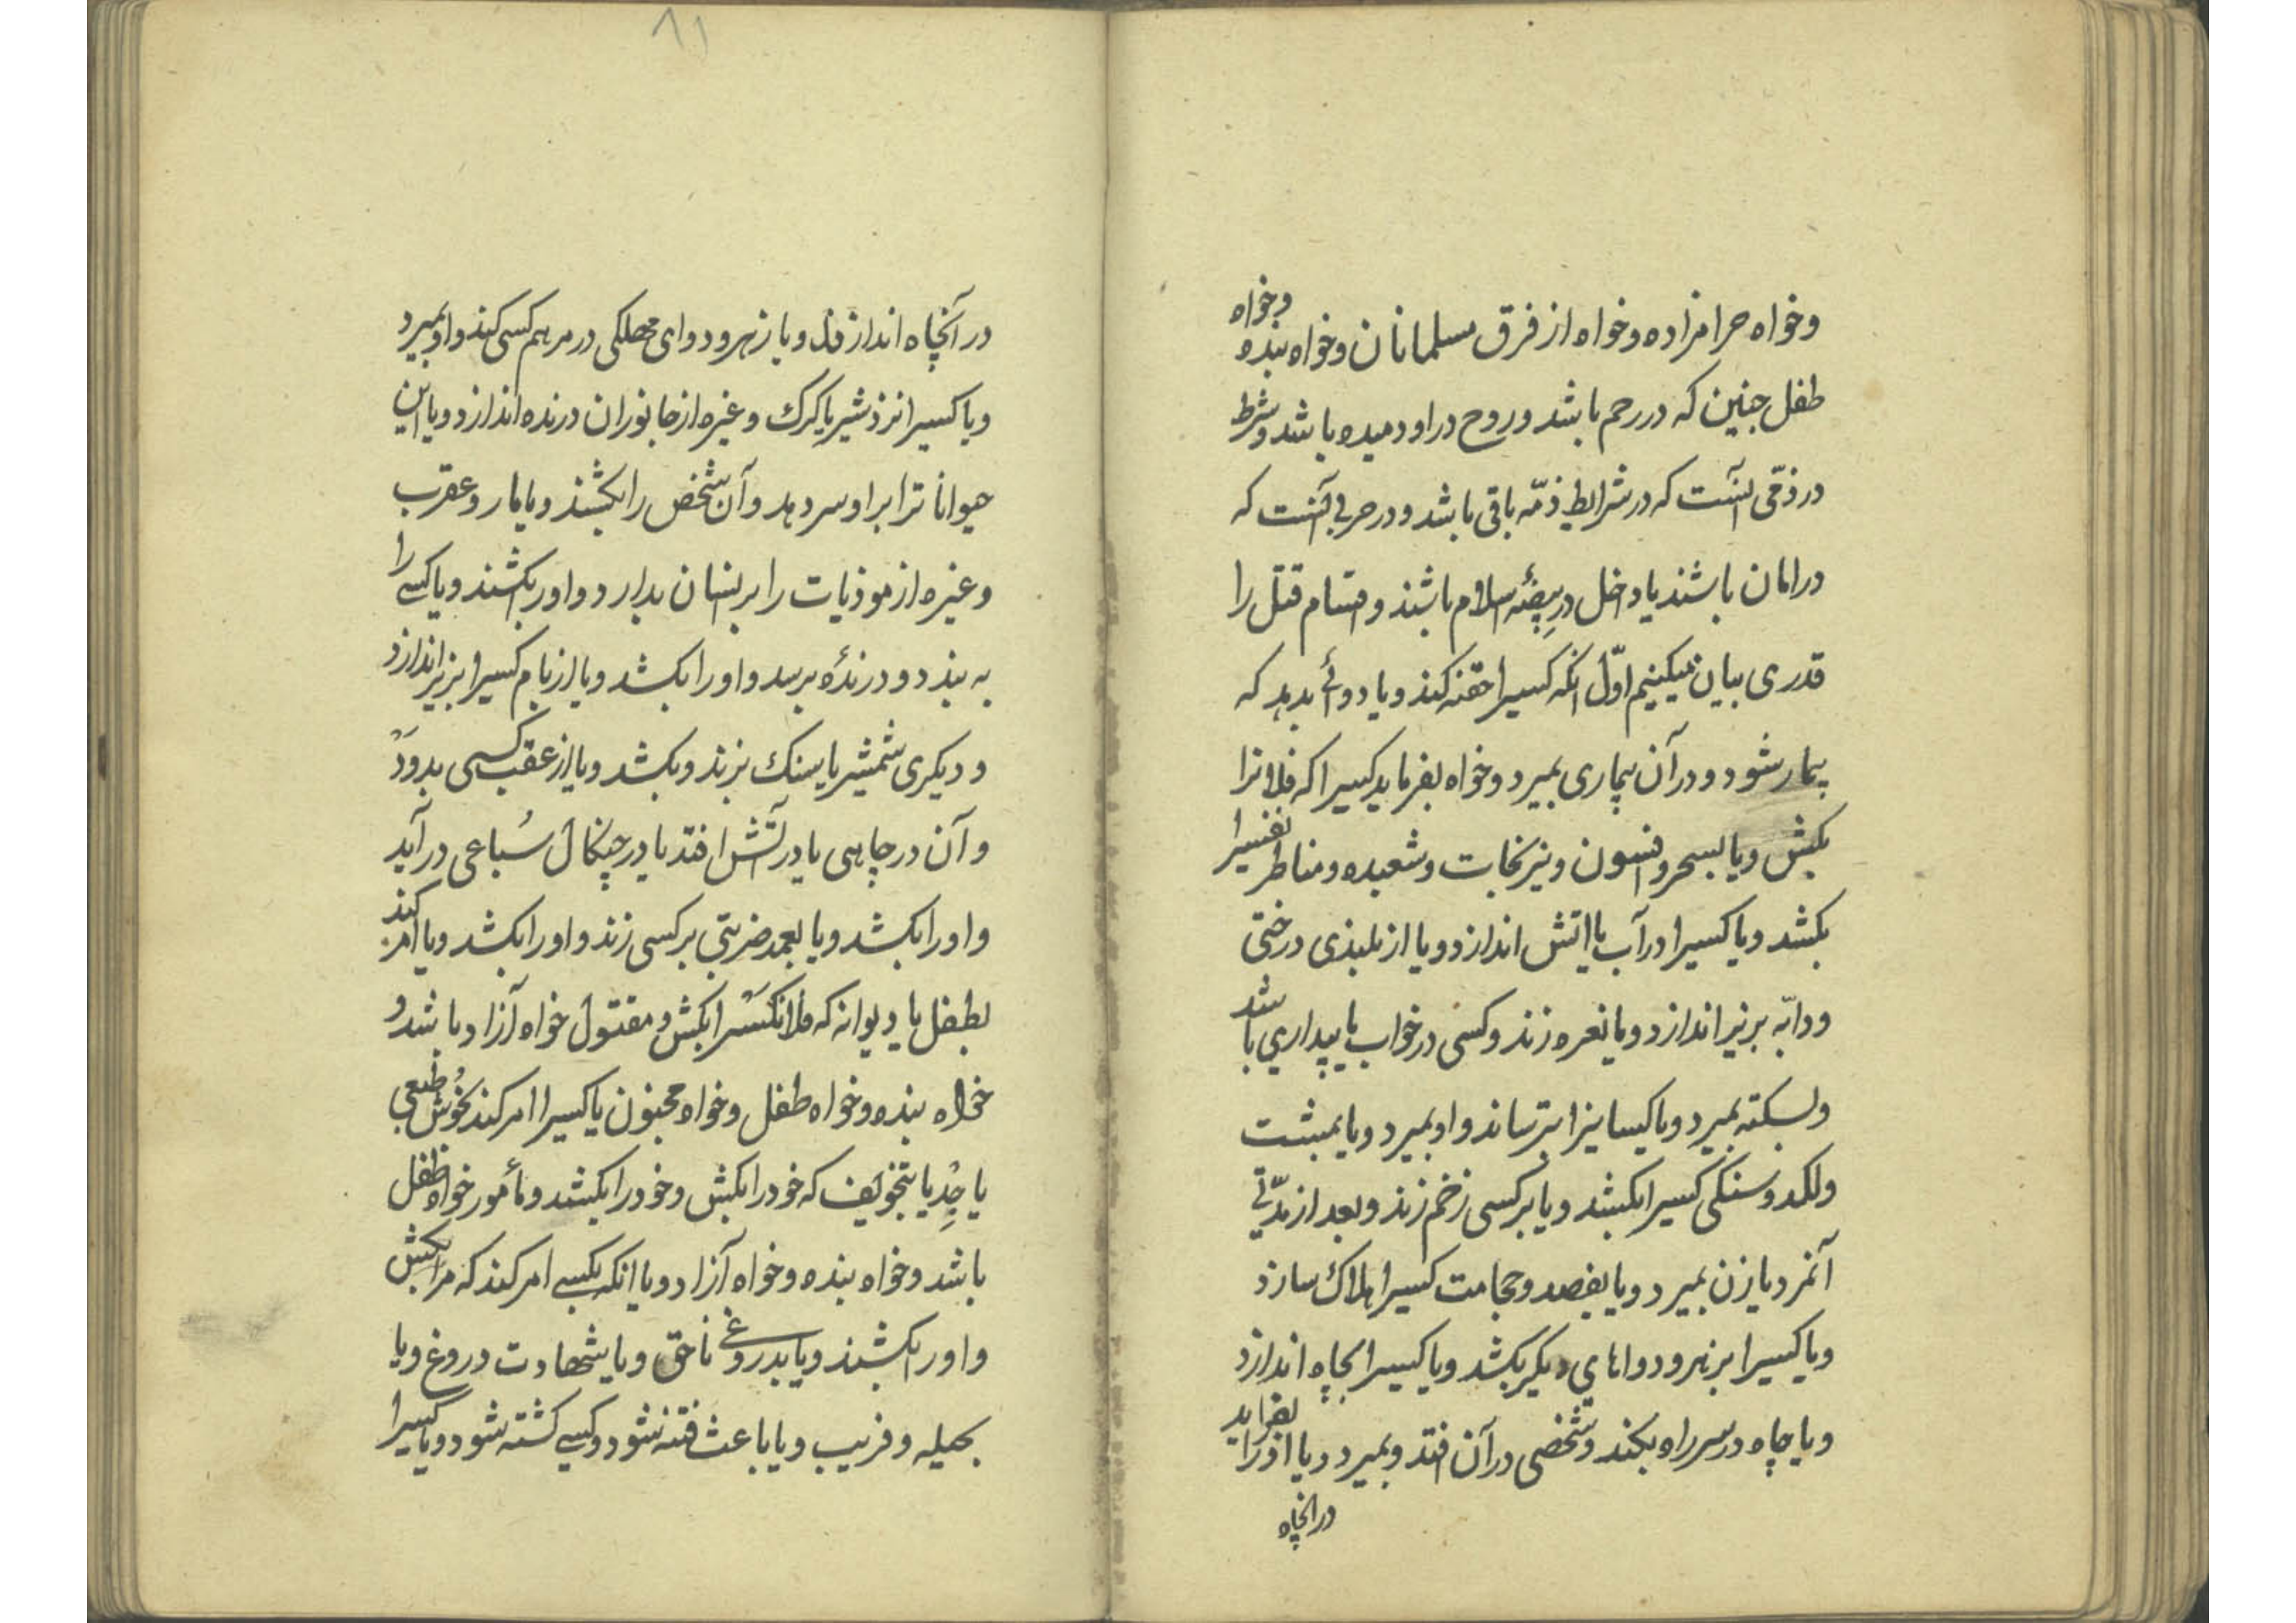 وخواه حرامزاده وخواه از فرق مسلمانان وخواه بنده وخواه
طفل جنین که در رحم باشد و روح در او دمیده باشد وشرط
در ذمّی آنست که در شرایط ذمّه باقی باشد و در حربی آنست که
در امان باشند یا داخل در بیضهٔ اسلام باشند و اقسام قتل را
قدری بیان میکنیم اوّل انکه کسیرا حقنه کند ویا دوائی بدهد که
بیمار شود و در آن بیماری بمیرد وخواه بفرماید کسیرا که فلانرا
بکش ویا بسحر و افسون ونیرنجات وشعبده ومناطر نفسیرا
بکشد ویا کسیرا در آب یا اتش اندازد ویا از بلندی درختی
ودابّه بزیر اندازد ویا نعره زند وکسی در خواب یا بیداری باشد
وبسکته بمیرد ویا کیسانیرا بترساند واو بمیرد ویا بمشت
ولکد وسنکی کسیرا بکشد ویا بر کسی زخم زند وبعد از مدّتی
آنمرد یا زن بمیرد ویا بفصد وحجامت کسیرا هلاک سازد
ویا کسیرا بزهر و دواهای دیکر بکشد ویا کسیرا بچاه اندازد
ویا چاه در سر راه بکند وشخصی در آن افتد وبمیرد ویا اورا بفرماید
در انچاه
۸۱
در آنچاه اندازند ویا زهر ودوای مهلکی در مرهم کسی کند واو بمیرد
ویا کسیرا نزد شیر یا کرک وغیره از جانوران درنده اندازد ویا این
حیواناترا بر او سر دهد وآن شخص را بکشند ویا مار و عقرب
وغیره از موذیات را بر انسان بدارد واورا بکشند ویا کسی را
به بندد ودرندهٔ برسد واورا بکشد ویا از بام کسیرا بزیر اندازد
و دیکری شمشیر یا سنک بزند وبکشد ویا از عقب کسی بدود
وآن در چاهی یا در آتش افتد یا در چنکال سُباعی در آید
واورا بکشد ویا بعمد ضربتی بر کسی زند واورا بکشد ویا امر کند
بطفل یا دیوانه که فلانکسرا بکش ومقتول خواه آزاد باشد و
خواه بنده وخواه طفل وخواه مجنون یا کسیرا امر کند بخوش طبعی
یا جِدّ یا بتخویف که خود را بکش وخود را بکشد ومأمور خواه طفل
باشد وخواه بنده وخواه آزاد ویا انکه بکسی امر کند که مرا بکش
واورا بکشند ویا بدروغی ناحق ویا بشهادت دروغ ویا
بحیله وفریب ویا باعث فتنه شود وکسی کشته شود ویا کسیرا